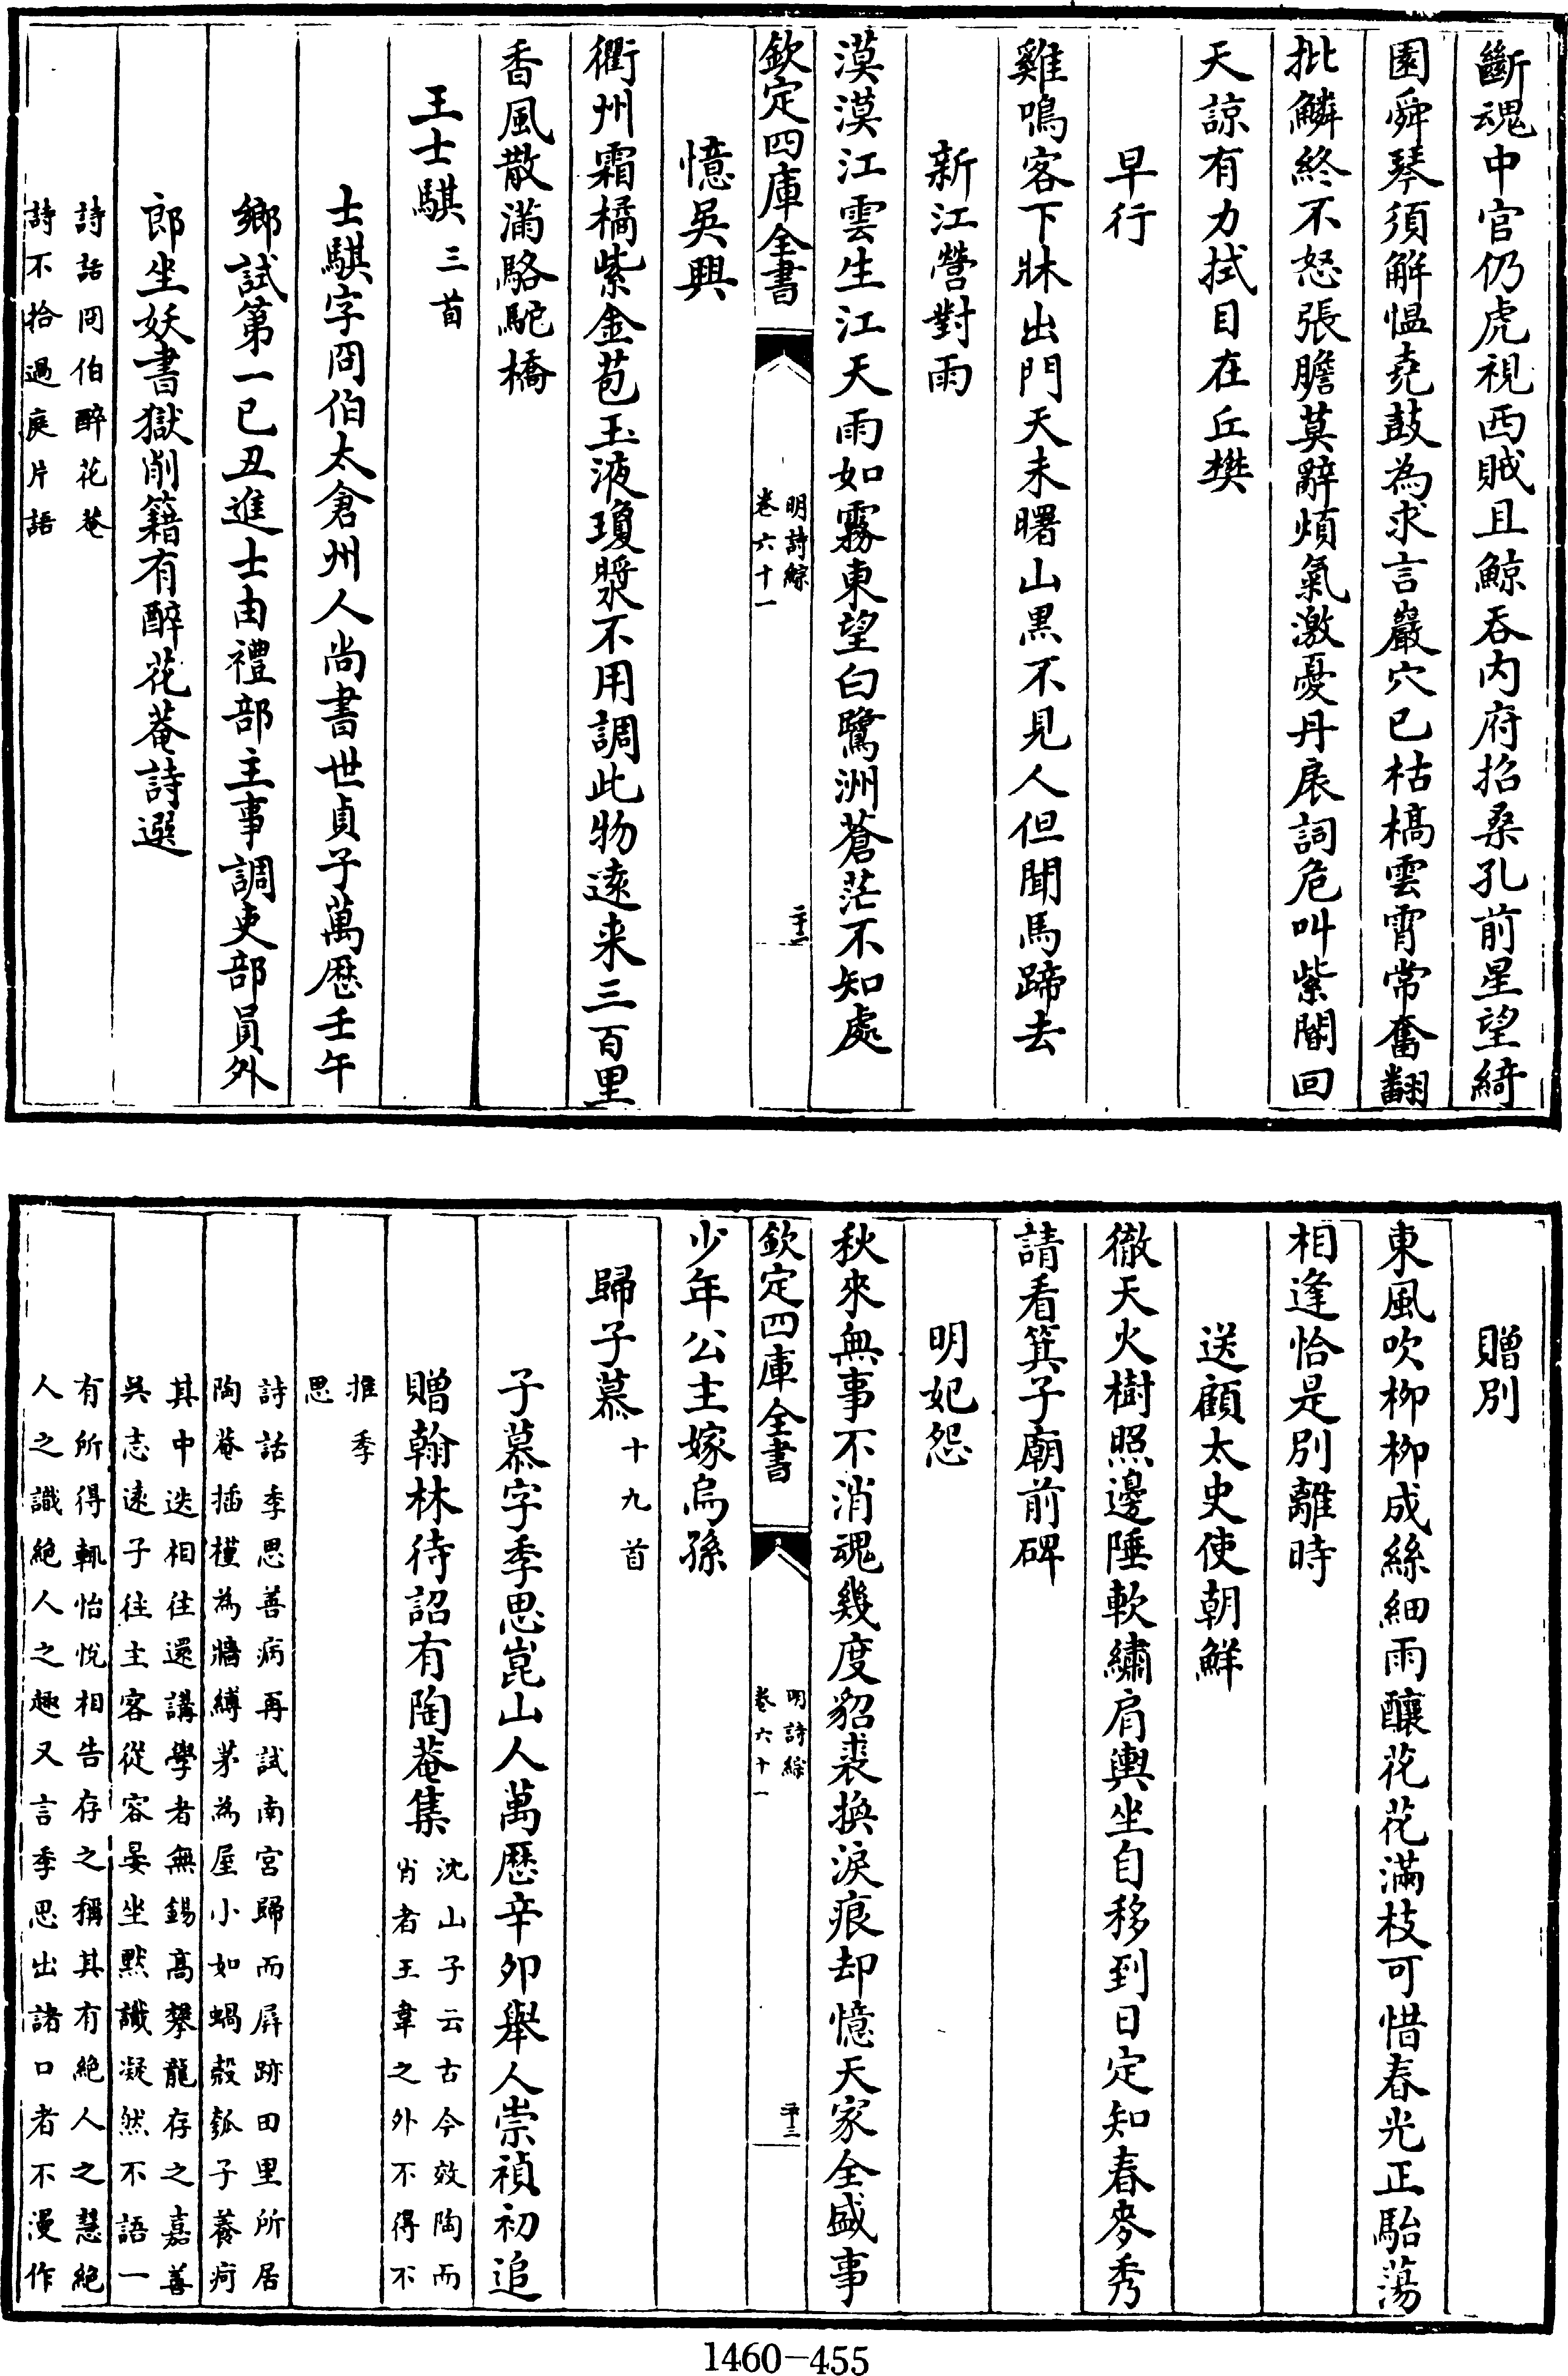 斷魂中官仍虎視西賊且鯨吞内府招桑孔前星望綺
園舜琴須解愠堯鼓為求言巖穴已枯槁雲霄常奮翻
批鱗終不怒張膽莫辭煩氣激憂丹扆詞危叫紫閽回
天諒有力拭目在丘樊
早行
雞鳴客下牀出門天未曙山黒不見人但聞馬蹄去
新江營對雨
漠漠江雲生江天雨如霧東望白鷺洲蒼茫不知處
欽定四庫全書
明詩綜
卷六十一
二十二
憶吳興
衢州霜橘紫金苞玉液瓊漿不用調此物遠来三百里
香風散滿駱駝橋
王士騏三首
士騏字冏伯太倉州人尚書世貞子萬歴壬午
鄉試第一已丑進士由禮部主事調吏部員外
郎坐妖書獄削籍有醉花菴詩選
詩話冏伯醉花菴
詩不拾過庭片語
贈別
東風吹柳柳成絲細雨釀花花滿枝可惜春光正駘蕩
相逢恰是別離時
送顧太史使朝鮮
徹天火樹照邊陲軟繡肩輿坐自移到日定知春麥秀
請看箕子廟前碑
明妃怨
秋來無事不消魂幾度貂裘換淚痕却憶天家全盛事
欽定四庫全書
明詩綜
卷六十一
二十三
少年公主嫁烏孫
歸子慕十九首
子慕字季思崑山人萬歷辛夘舉人崇禎初追
贈翰林待詔有陶菴集
沈山子云古今效陶而
肖者王韋之外不得不
推季
思
詩話季思善病再試南宮歸而屏跡田里所居
陶菴插槿為牆縛茅為屋小如蝸殻瓠子養疴
其中迭相往還講學者無錫高攀龍存之嘉善
吳志遠子往主客從容晏坐黙識凝然不語一
有所得輒怡悅相告存之稱其有絶人之慧絶
人之識絶人之趣又言季思出諸口者不漫作
1460-455